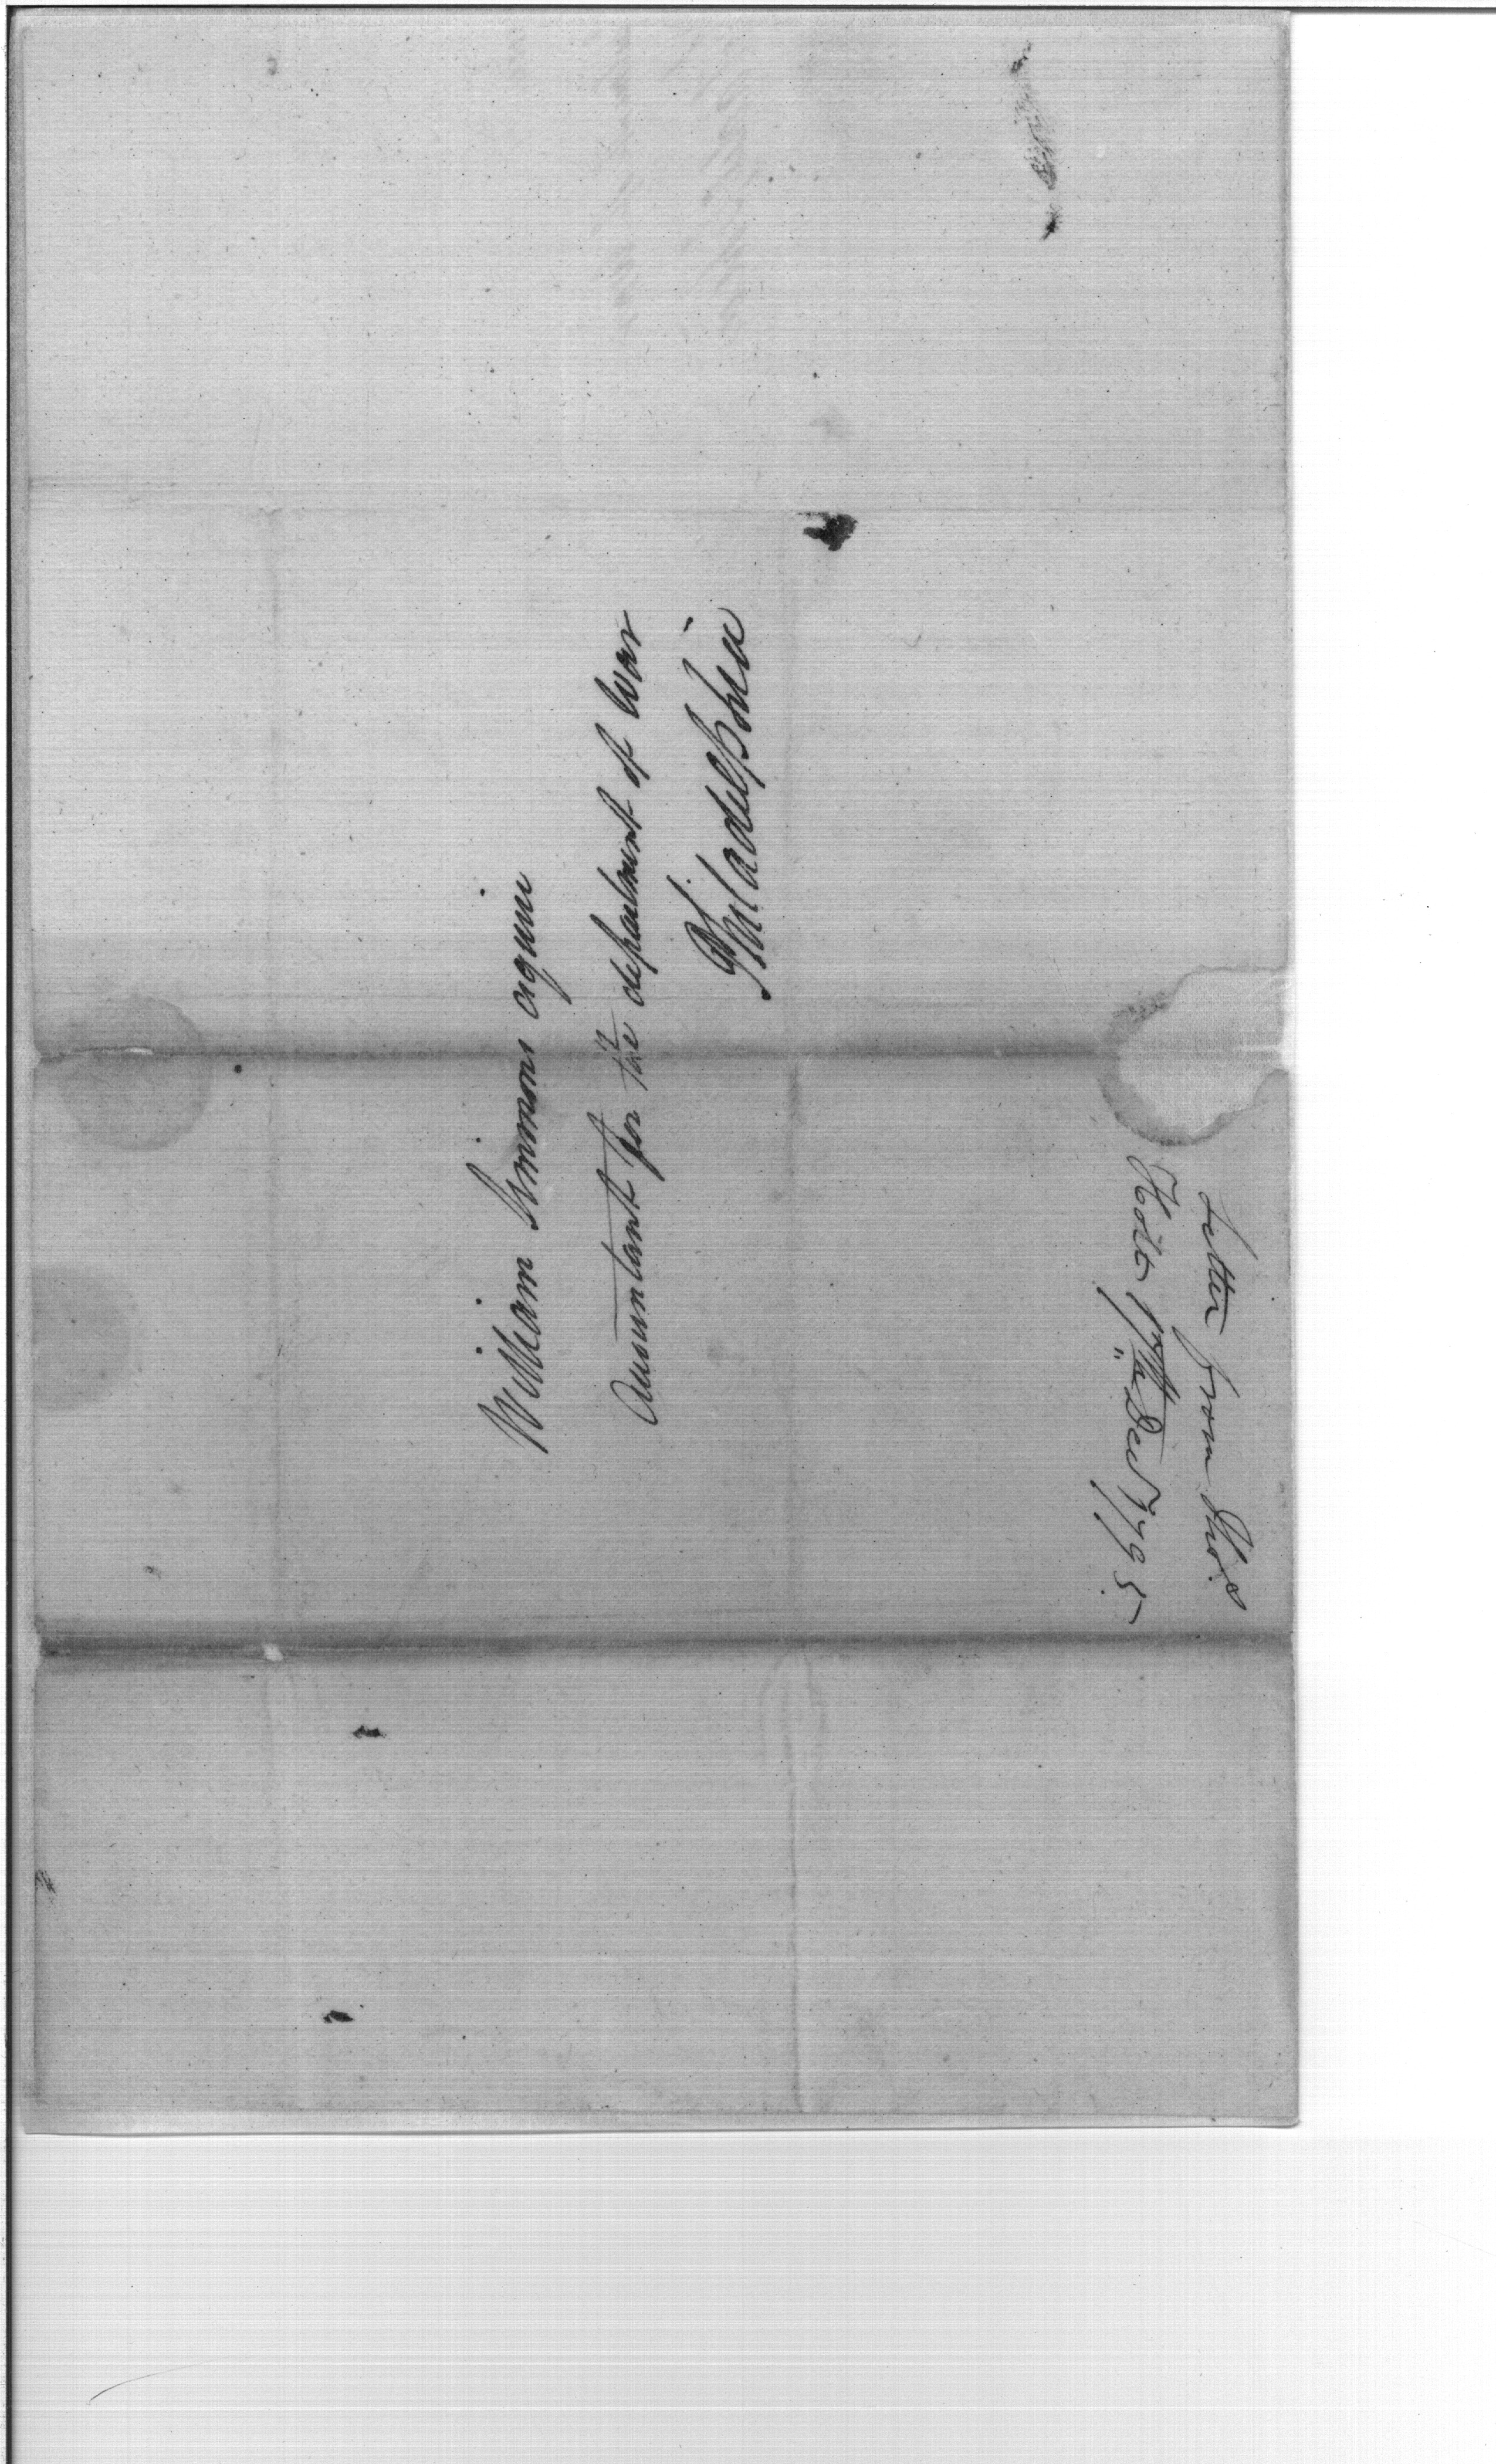 William Simmons esquire
Accountant for the department of War
Philadelphia
Letter from Thos.
Holt Dec 1795